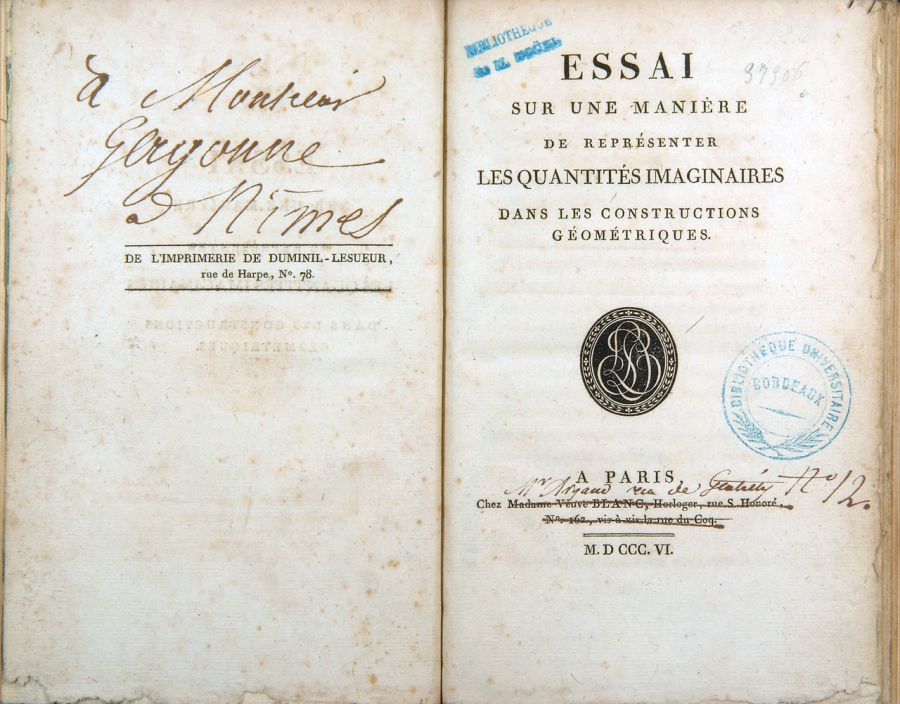 à Monsieur
Gergonne
à Nîmes
DE L'IMPRIMERIE DE DUMINIL-LESUEUR,
rue de Harpe, Nº. 78.
BIBLIOTHEQUE
de M. HOÜEL
ESSAI
37906
SUR UNE MANIÈRE
DE REPRÉSENTER
LES QUANTITÉS IMAGINAIRES
DANS LES CONSTRUCTIONS
GÉOMÉTRIQUES.
BIBLIOTHÈQUE UNIVERSITAIRE
BORDEAUX
A PARIS,
Mr Argand rue de Gentilly Nº 12.
Chez Madame Veuve BLANC, Horloger, rue S. Honoré,
Nº. 162, vis-à-vis la rue du Coq.
M. D CCC. VI.